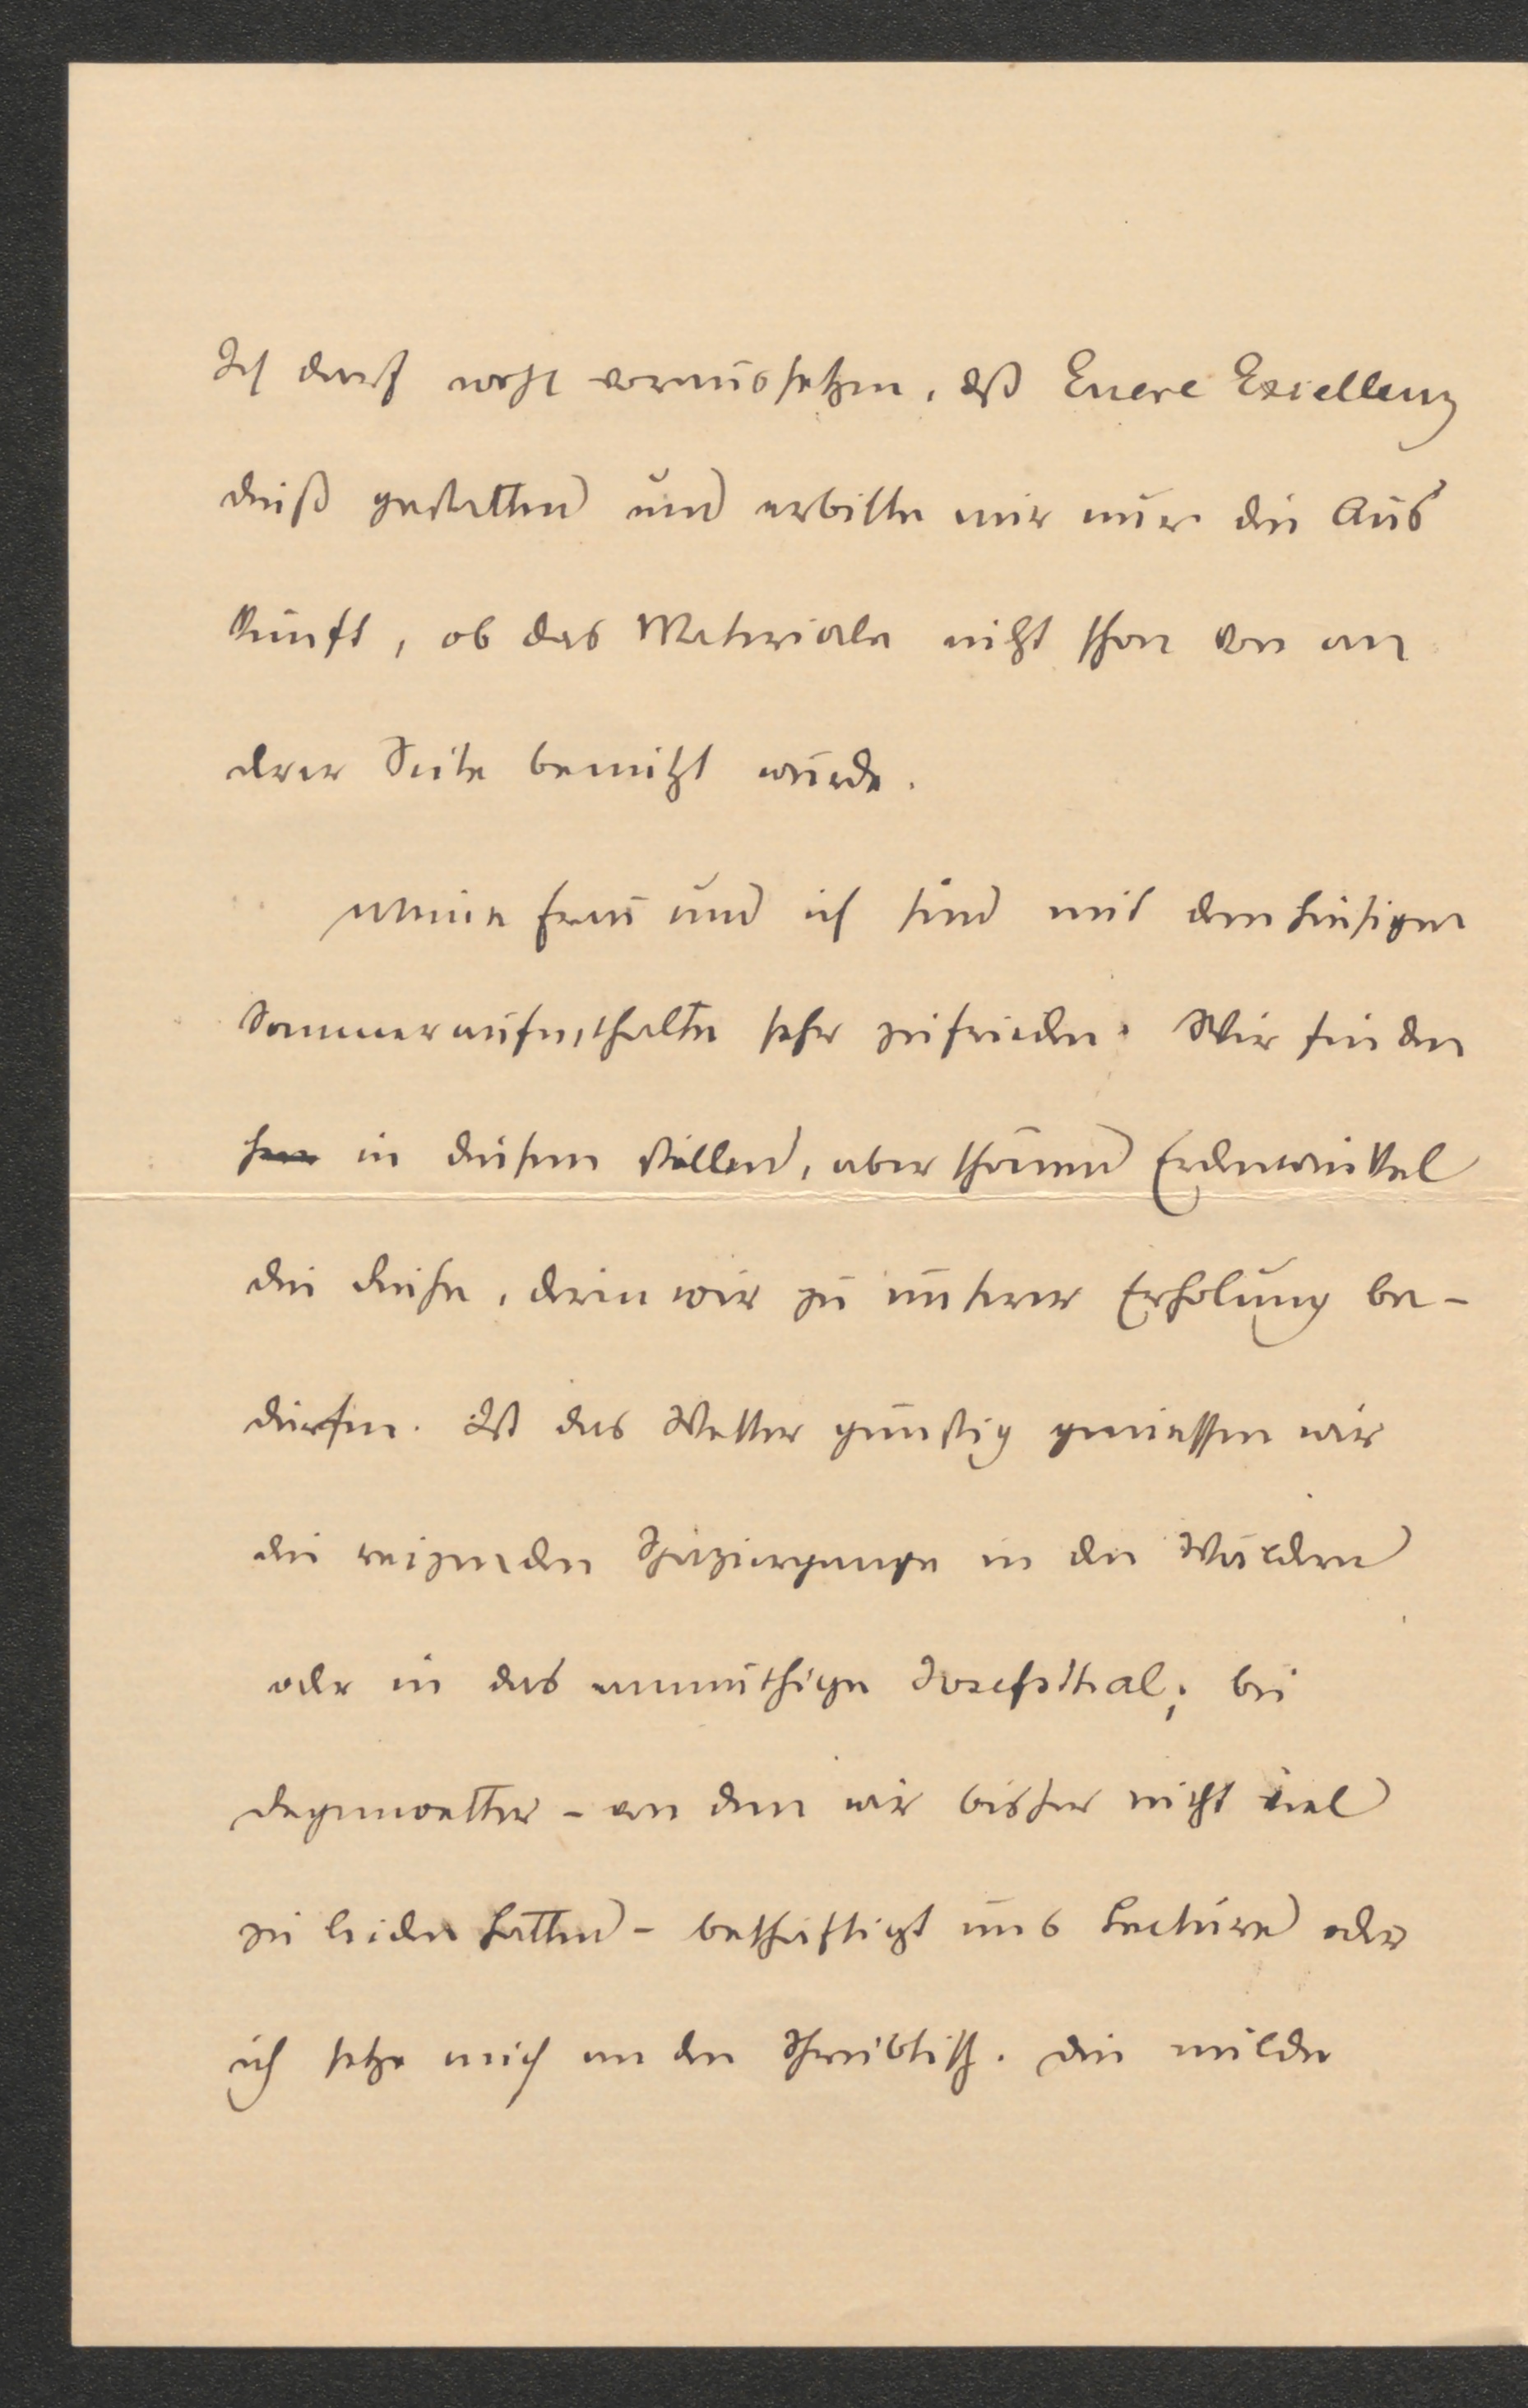 Ich darf wohl voraussetzen, dß Euere Excellenz
dieß gestatten und erbitte mir nur die Aus
kunft, ob das Materiale nicht schon von an
derer Seite benützt wurde.
Meine Frau und ich sind mit dem hiesigen
Sommeraufenthalte sehr zufrieden. Wir finden
in diesem stillen, aber schönen Erdenwinkel
die Ruhe, deren wir zu unserer Erholung be-
dürfen. Ist das Wetter günstig geniessen wir
die reizenden Spaziergänge in den Wäldern
oder in das anmuthige Josefsthal; bei
Regenwetter - von dem wir bisher nicht viel
zu leiden hatten - beschäftigt uns Lectüre oder
ich setze mich an den Schreibtisch. Die milde